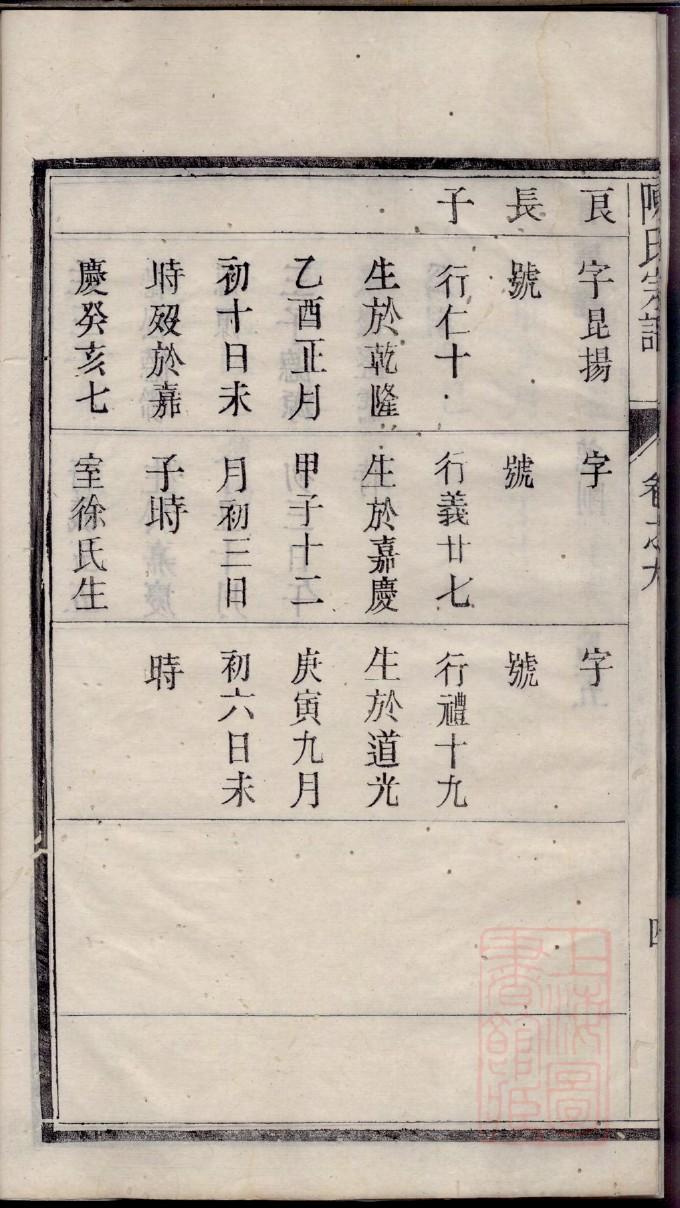 陳氏宗譜
卷之九
四
良
長
子
字昆揚
號
行仁十
生於乾隆
乙酉正月
初十日未
時歿於嘉
慶癸亥七
字
號
行義廿七
生於嘉慶
甲子十二
月初三日
子時
室徐氏生
字
號
行禮十九
生於道光
庚寅九月
初六日未
時
上海圖
書館藏